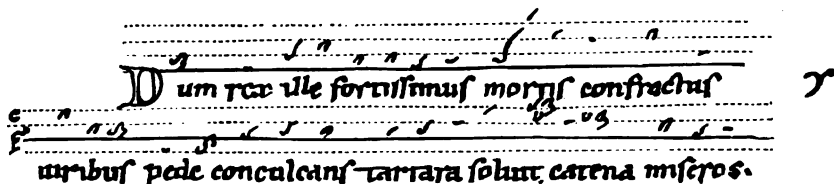 Dum rex ille fortissimus mortis confractus
c
F
uiribus pede conculcans tartara soluit, catena miseros.